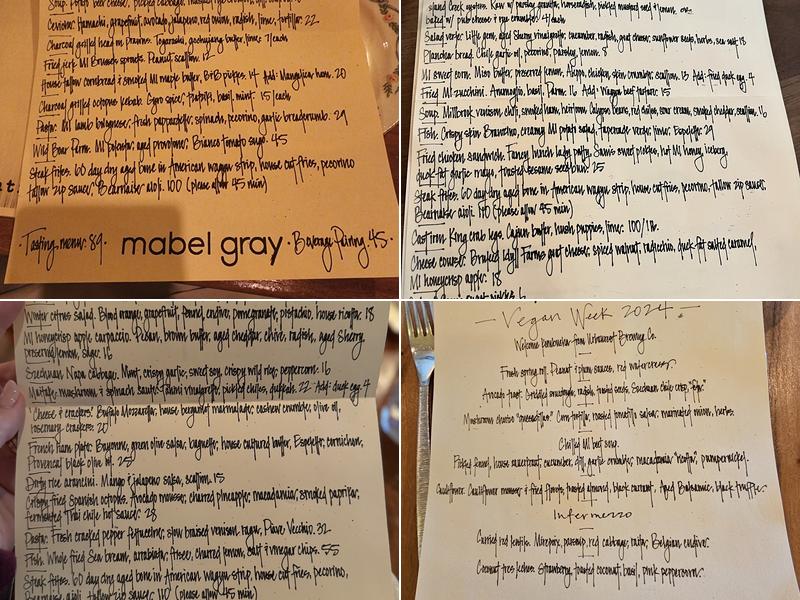 Soup. beer cheese, pickled cabbage,
Ceviche: Hamachi, grapefruit, avocado, jalapeno, red onion, radish, lime, tortilla. 22
Charcoal grilled head on prawns. Togarashi, gochujang butter, lime. 7/each
Fried jerk MI Brussels sprouts. Peanut, scallion. 12
House tallow cornbread & smoked MI maple butter, B&B pickles. 14 Add: Mangalica ham. 20
Charcoal grilled octopus kebab. Gyro spice, tzatziki, basil, mint. 15/each
Pasta: MI lamb bolognese, fresh pappardelle, spinach, pecorino, garlic breadcrumb. 29
Wild Boar Parm. MI polenta, aged provolone, Bianco tomato sugo. 45
Steak frites. 60 day dry aged bone in American wagyu strip, house cut fries, pecorino
tallow zip sauce, Bearnaise aioli. 100 (please allow 45 min)
· Tasting menu: 89 · mabel gray · Beverage Pairing 45 ·
Island Creek oysters. Raw w/ parsley granita, horseradish, pickled mustard seed & lemon or
baked w/ pub cheese & rye crumble. 4/each
Salad verte: Little gem, aged Sherry vinaigrette, cucumber, radish, goat cheese, sunflower seeds, herbs, sea salt 18
Plancha bread. Chile garlic oil, pecorino, parsley, lemon. 8
MI sweet corn. Miso butter, preserved lemon, Aleppo, chicken skin crumble, scallion. 13 Add: fried duck egg. 4
Fried MI zucchini. Amamoglio, basil, Parm. 16 Add: Wagyu beef tartare 15
Soup. Millbrook venison chili, smoked ham, heirloom Calypso beans, red chilies, sour cream, smoked cheddar, scallion. 16
Fish. Crispy skin Branzino, creamy MI potato salad, tapenade verde, lime, Espelette. 29
Fried chicken sandwich. Fancy lunch lady patty, Sam's sweet pickles, hot MI honey, iceberg,
duck fat garlic mayo, toasted sesame seed bun. 25
Steak frites. 60 day dry aged bone in American wagyu strip, house cut fries, pecorino, tallow zip sauce,
Bearnaise aioli. 110 (please allow 45 min)
Cast iron King crab legs. Cajun butter, hush puppies, lime. 100/1 lb.
Cheese course: Bruleed Idyll Farms goat cheese, spiced walnut, radicchio, duck fat salted caramel,
MI honeycrisp apple. 18
Winter citrus salad. Blood orange, grapefruit, fennel, endive, pomegranate, pistachio, house ricotta. 18
MI honeycrisp apple carpaccio. Pecan, brown butter, aged cheddar, chive, radish, aged Sherry,
preserved lemon, sage. 16
Szechuan Napa cabbage. Mint, crispy garlic, sweet soy, crispy wild rice, peppercorn. 16
Maitake mushroom & spinach saute. Tahini vinaigrette, pickled chilies, dukkah. 22 Add: duck egg. 4
"Cheese & crackers." Buffalo Mozzarella, house bergamot marmalade, cashew crumble, olive oil,
rosemary crackers. 20
French ham plate. Bayonne, green olive salsa, baguette, house cultured butter, Espelette, cornichon,
Provencal black olive oil. 25
Dirty rice arancini. Mango & jalapeno salsa, scallion. 15
Crispy fried Spanish octopus. Avocado mousse, charred pineapple, macadamia, smoked paprika,
fermented Thai chile hot sauce. 28
Pasta. Fresh cracked pepper fettuccine, slow braised venison ragu, Piave Vecchio. 32
Fish. Whole fried Sea bream, arrabiata, frisee, charred lemon, salt & vinegar chips. 55
Steak frites. 60 day dry aged bone in American wagyu strip, house cut fries, pecorino,
Bearnaise aioli, tallow zip sauce. 110 (please allow 45 min)
— Vegan Week 2024 —
Welcome kombucha from Urbanrest Brewing Co.
Fresh spring roll. Peanut & plum sauces, red watercress.
Avocado toast. Griddled sourdough, radish, toasted seeds, Szechuan chile crisp,
Mushroom chorizo "quesadillas." Corn tortilla, roasted tomatillo salsa, marinated onion, herbs.
Chilled MI beet soup.
Pickled fennel, house sauerkraut, cucumber, dill, garlic crumble, macadamia "ricotta", pumpernickel.
Cauliflower. Cauliflower mousse & fried florets, toasted almond, black currant, Aged Balsamic, black truffle.
Intermezzo
Curried red lentils. Mirepoix, parsnip, red cabbage, raita, Belgian endive.
Coconut tres leches. Strawberry, toasted coconut, basil, pink peppercorn.